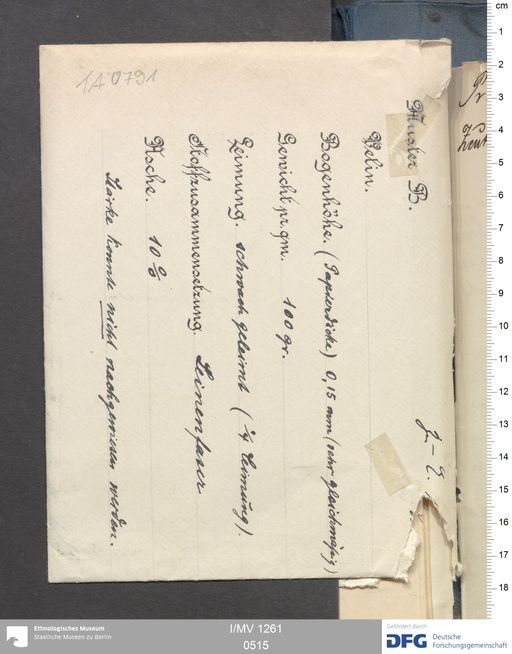 1A 0791
Muster B.
Velin.
Bogenhöhe. (Papierdicke) 0,15 mm (sehr gleichmäßig)
Gewicht pr. qm. 100 gr.
Leimung. schwach geleimt (1/4 Leimung).
Stoffzusammensetzung. Leinenfaser
Asche. 10 %
Stärke konnte nicht nachgewiesen werden.
cm
1
2
3
4
5
6
7
8
9
10
11
12
13
14
15
16
17
18
Ethnologisches Museum
Staatliche Museen zu Berlin
I/MV 1261
0515
Gefördert durch
DFG Deutsche
Forschungsgemeinschaft